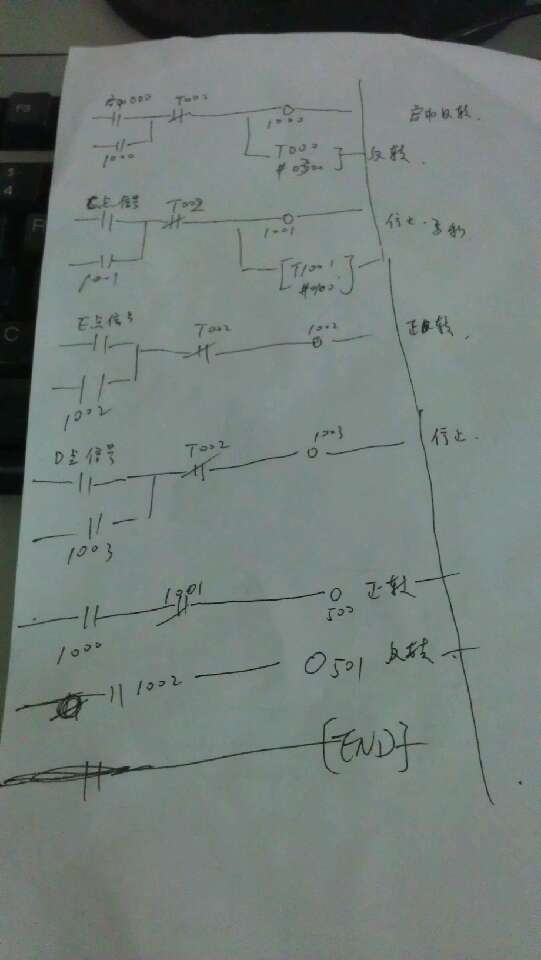 启动000 T002
1000 1000 启动反转.
T000
#0300 反转.
C点信号 T002
1001 1001 停止.
T1001
E点信号 T002 1002
1002 正反转.
D点信号 T002 1003
1003 停止.
1000 1001 500 正转
1002 501 反转.
[END]